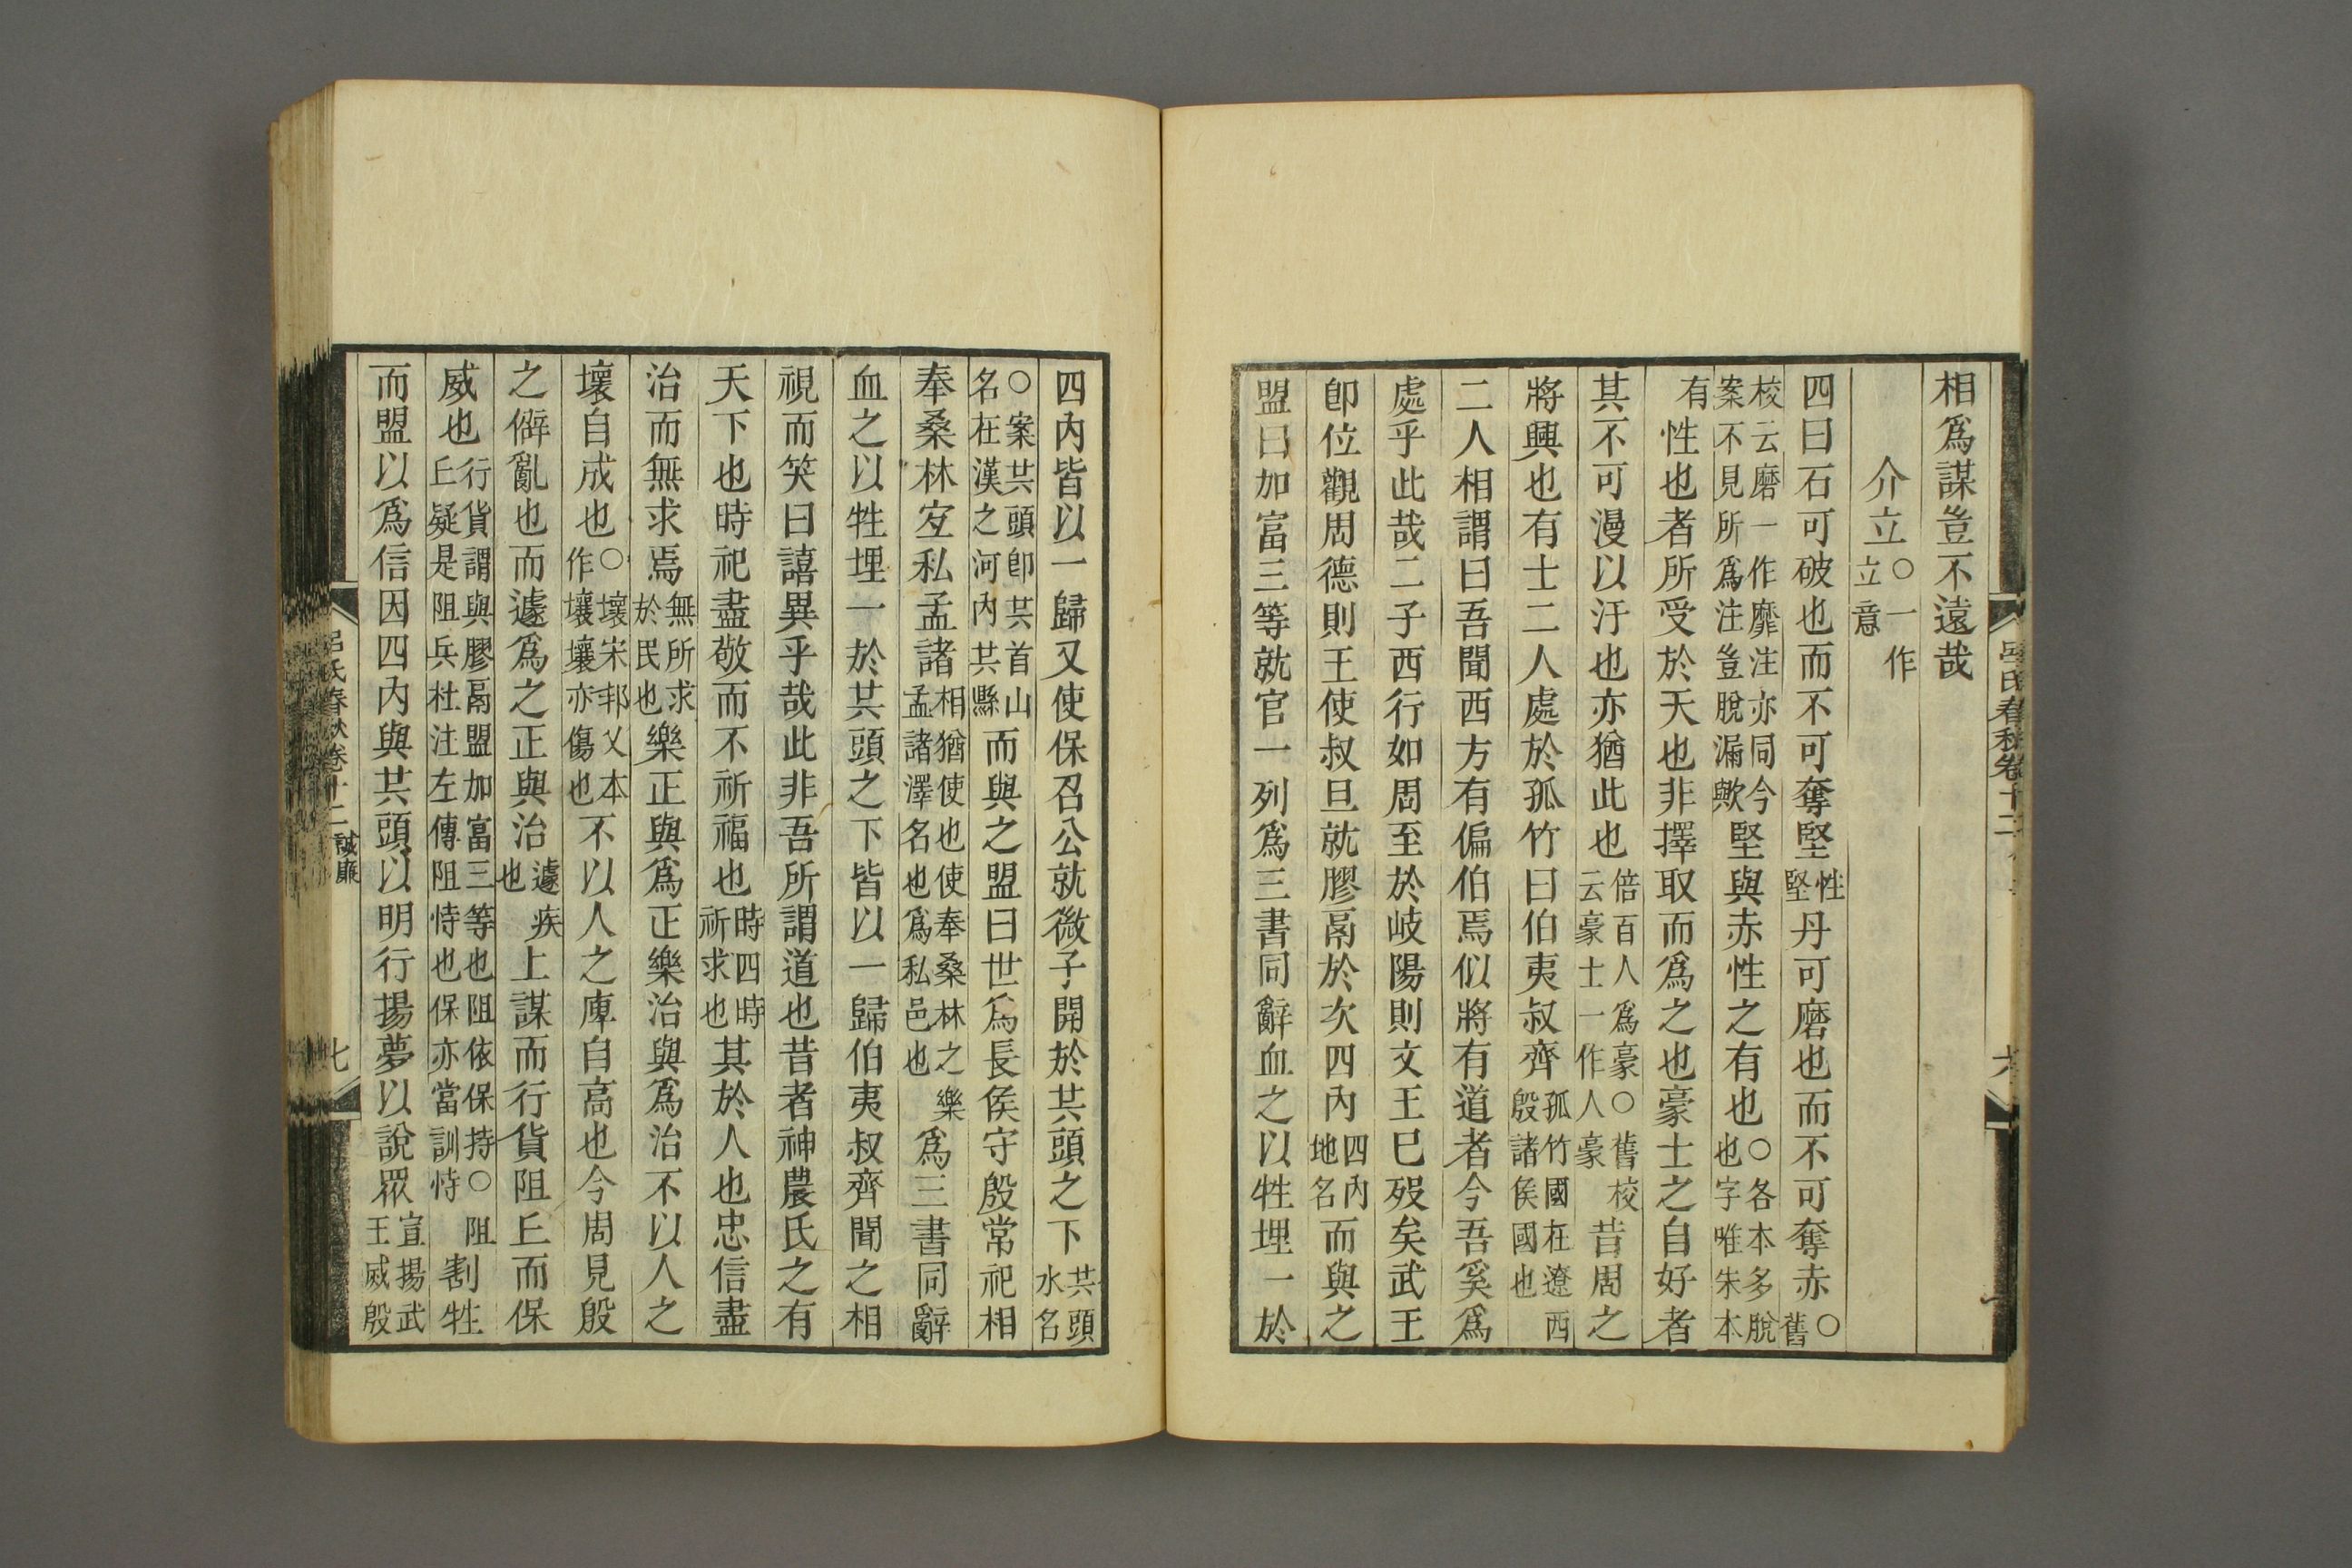 相爲謀豈不遠哉
介立○一作立意
四曰石可破也而不可奪堅性堅丹可磨也而不可奪赤○舊
校云磨一作靡注亦同今案不見所爲注豈脫漏歟堅與赤性之有也○各本多脫也字唯朱本
有性也者所受於天也非擇取而爲之也豪士之自好者
其不可漫以汙也亦猶此也倍百人爲豪○舊校云豪士一作人豪昔周之
將興也有士二人處於孤竹曰伯夷叔齊孤竹國在遼西殷諸侯國也
二人相謂曰吾聞西方有偏伯焉似將有道者今吾奚爲
處乎此哉二子西行如周至於岐陽則文王已歿矣武王
卽位觀周德則王使叔旦就膠鬲於次四內四內地名而與之
盟曰加富三等就官一列爲三書同辭血之以牲埋一於
呂氏春秋卷十二
六
四內皆以一歸又使保召公就微子開於共頭之下共頭水名
○案共頭卽共首山名在漢之河內共縣而與之盟曰世爲長侯守殷常祀相
奉桑林宐私孟諸相猶使也使奉桑林之樂孟諸澤名也爲私邑也爲三書同辭
血之以牲埋一於共頭之下皆以一歸伯夷叔齊聞之相
視而笑曰譆異乎哉此非吾所謂道也昔者神農氏之有
天下也時祀盡敬而不祈福也時四時祈求也其於人也忠信盡
治而無求焉無所求於民也樂正與爲正樂治與爲治不以人之
壞自成也○壞宋邦乂本作壤壤亦傷也不以人之庳自高也今周見殷
之僻亂也而遽爲之正與治遽疾也上謀而行貨阻丘而保
威也行貨謂與膠鬲盟加富三等也阻依保持○阻丘疑是阻兵杜注左傳阻恃也保亦當訓恃割牲
而盟以爲信因四內與共頭以明行揚夢以說眾宣揚武王威殷
呂氏春秋卷十二 誠廉
七